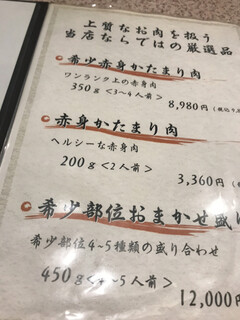 上質なお肉を扱う
当店ならではの厳選品
希少赤身かたまり肉
ワンランク上の赤身肉
350g<3~4人前>
8,980円(税込
赤身かたまり肉
ヘルシーな赤身肉
200g<2人前>
3,360円(税
希少部位おまかせ盛り
希少部位4~5種類の盛り合わせ
450g<4~5人前>
12,000円